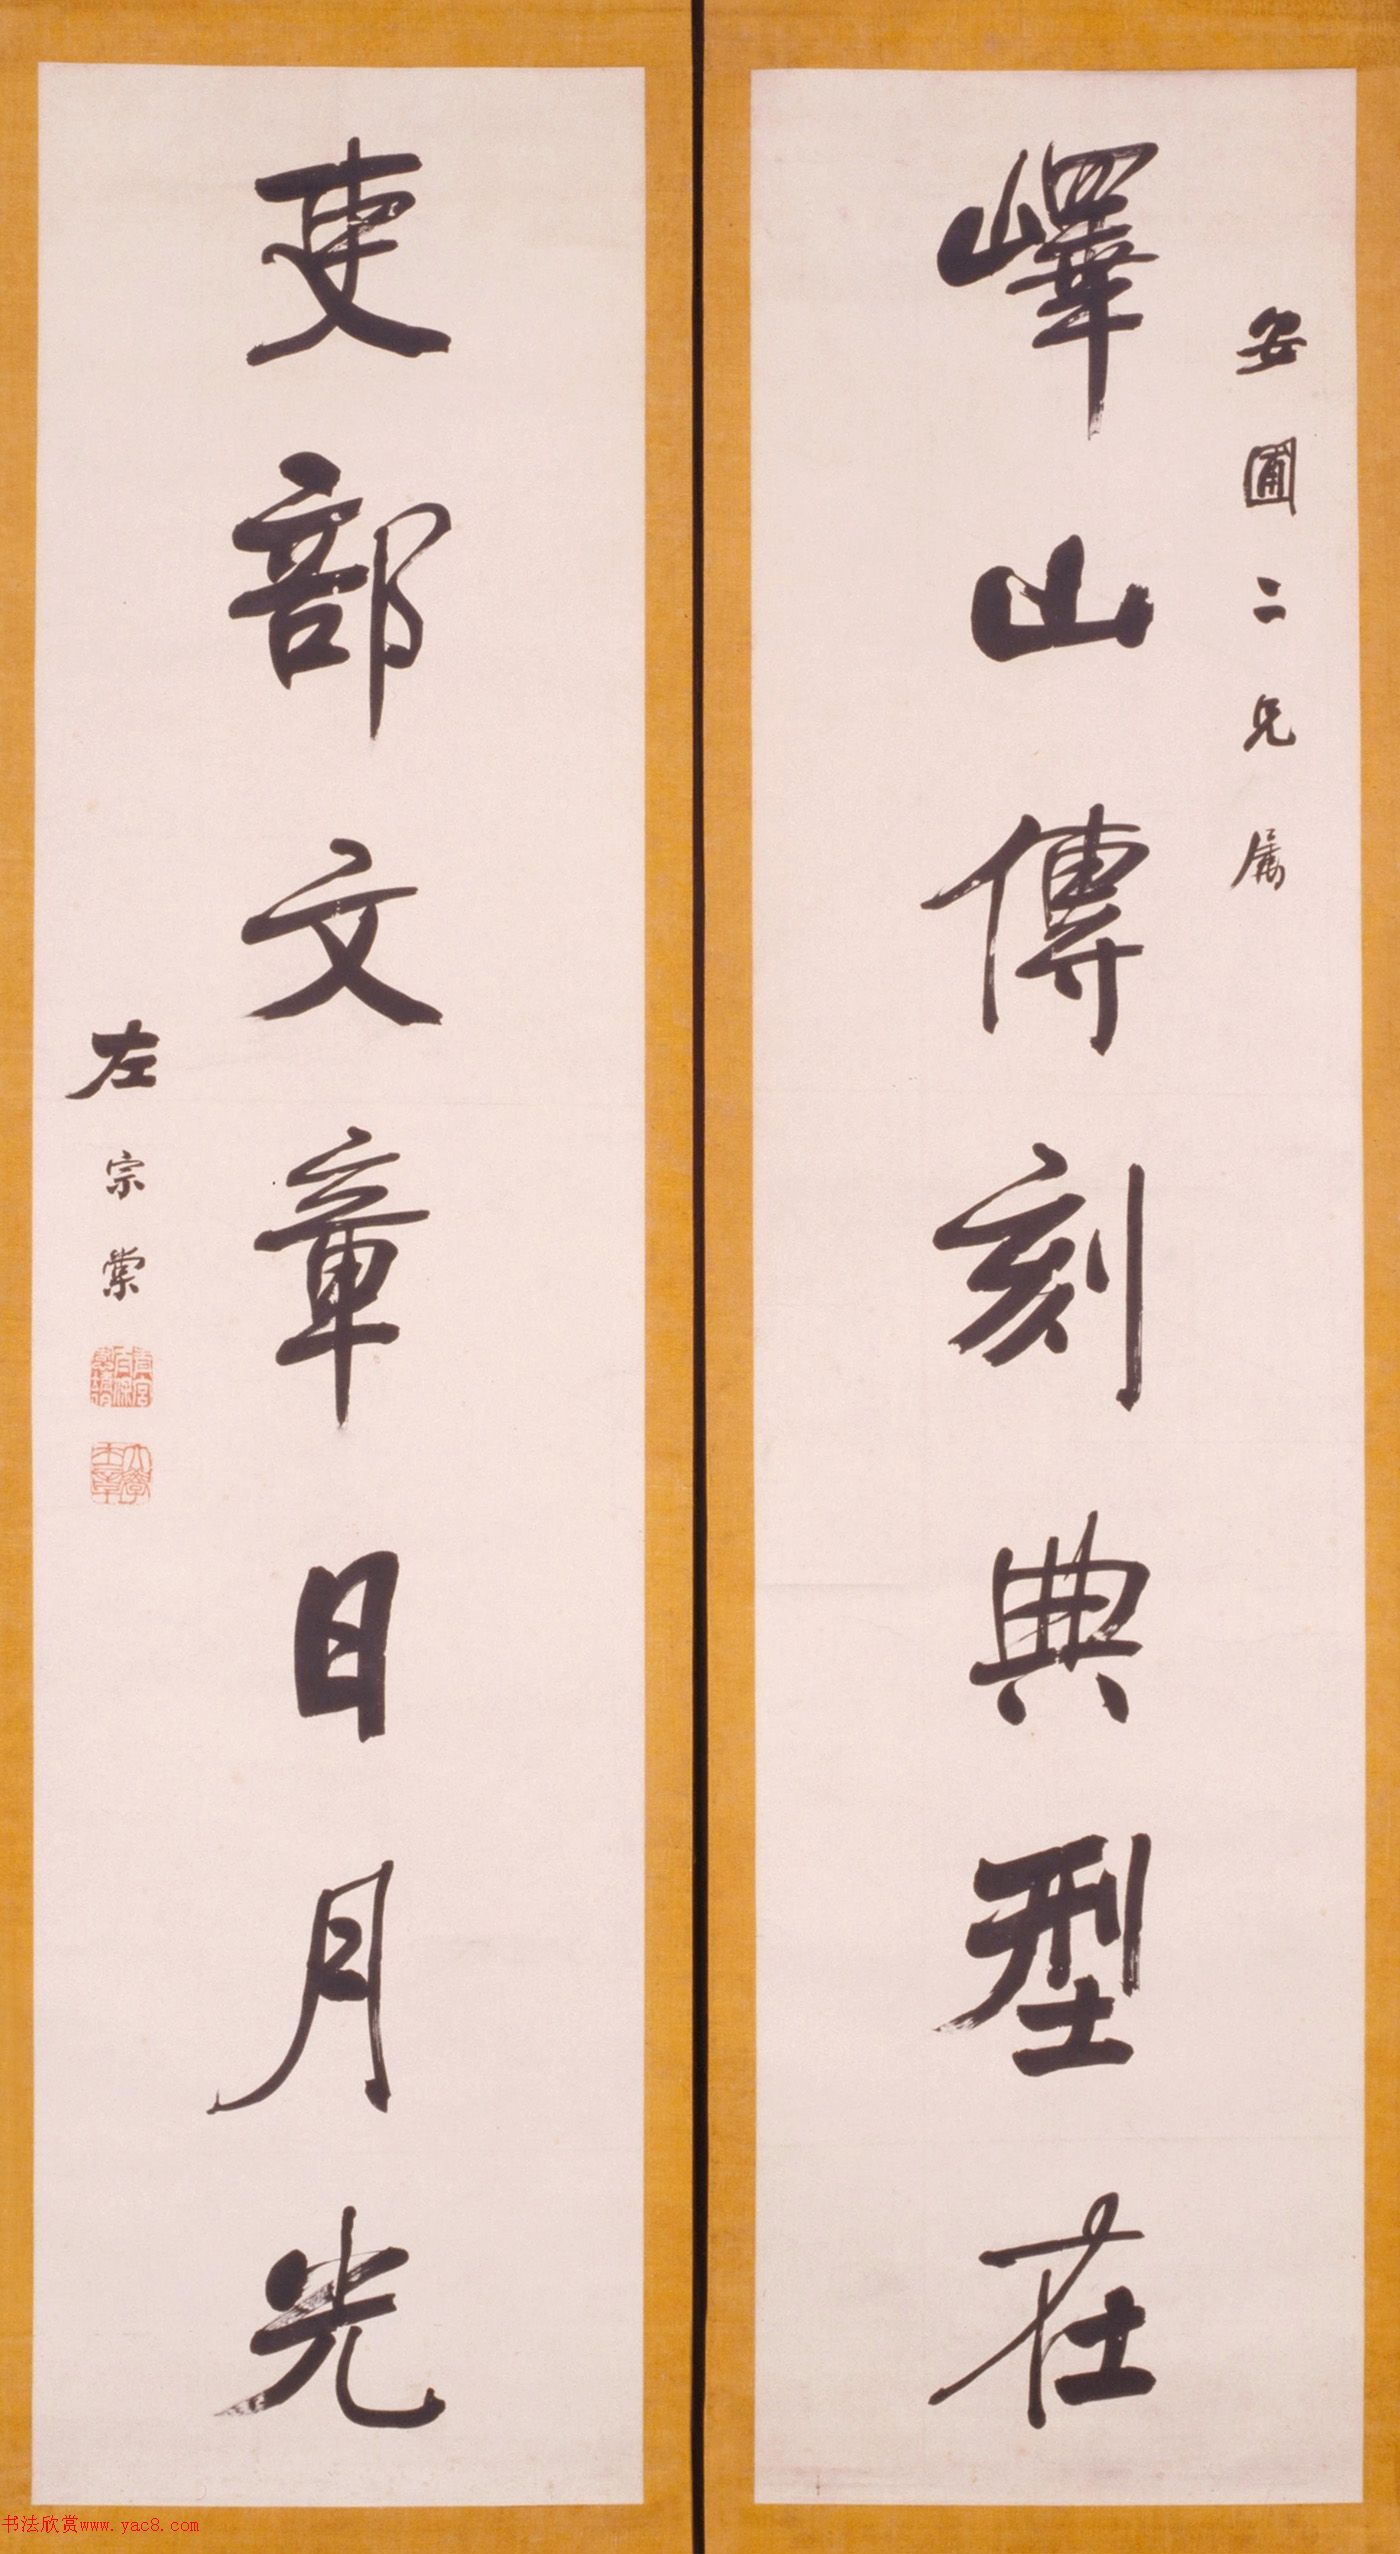 安圃二兄属
嶧山傳刻典型在
吏部文章日月光
左宗棠
书法欣赏www.yac8.com